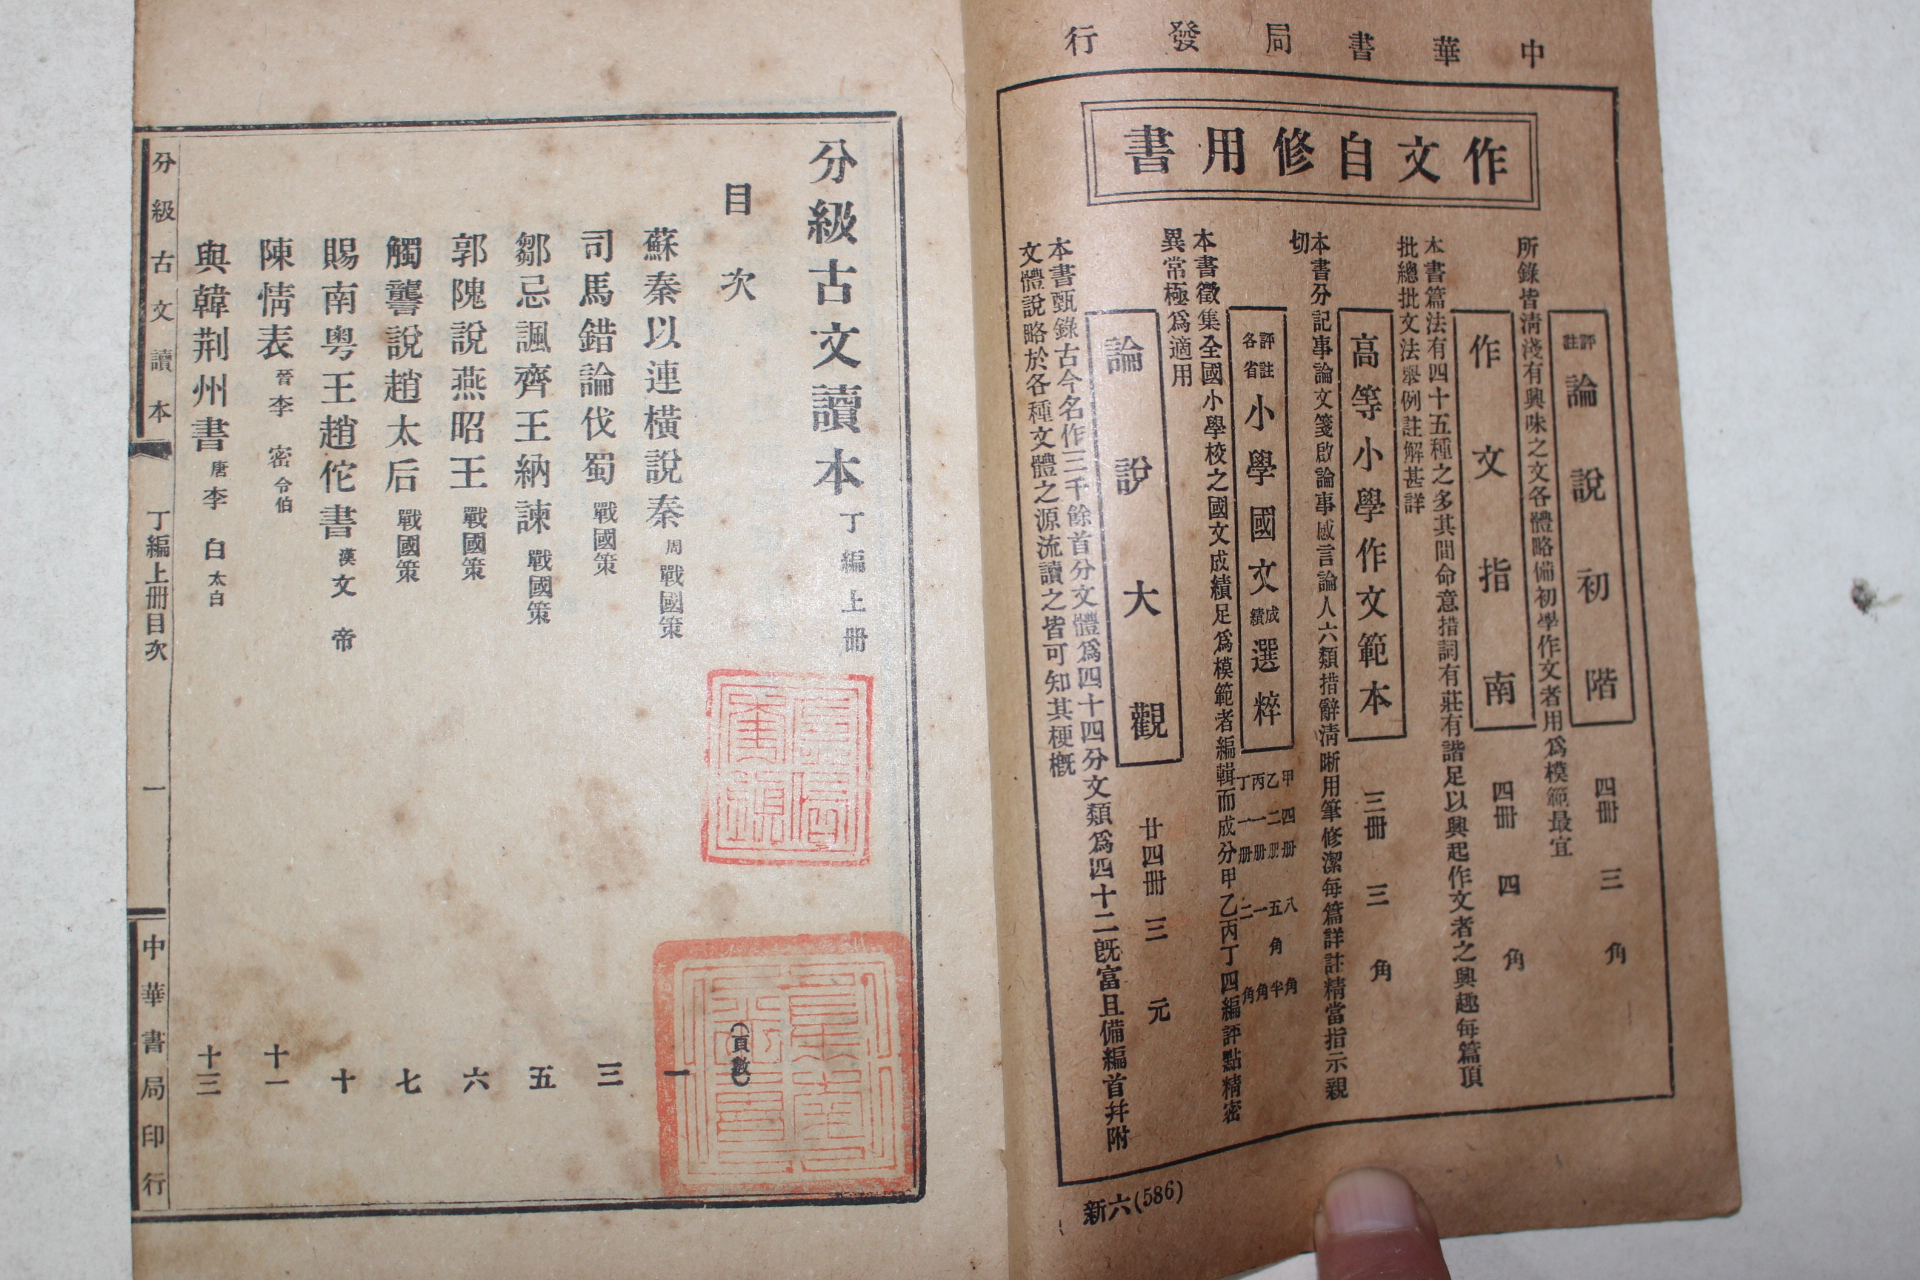 中華書局發行
作文自修用書
評註論說初階 四冊 三角
所錄皆淸淺有興味之文各體略備初學作文者用爲模範最宜
作文指南 四冊 四角
本書篇法有四十五種之多其間命意措詞有莊有諧足以興起作文者之興趣每篇頂
批總批文法舉例註解甚詳
高等小學作文範本 三冊 三角
本書分記事論文箋啟論事感言論人六類措辭淸晰用筆修潔每篇詳註精當指示親
切
評註各省小學國文成績選粹 甲四冊八角 乙二冊五角半 丙一冊一角 丁一冊二角
本書徵集全國小學校之國文成績足爲模範者編輯而成分甲乙丙丁四編評點精密
異常極爲適用
論說大觀 廿四冊 三元
本書甄錄古今名作三千餘首分文體爲四十四分文類爲四十二旣富且備編首幷附
文體說略於各種文體之源流讀之皆可知其梗槪
新六(586)
分級古文讀本 丁編上冊
目次 (頁數)
蘇秦以連橫說秦 周戰國策 一
司馬錯論伐蜀 戰國策 三
鄒忌諷齊王納諫 戰國策 五
郭隗說燕昭王 戰國策 六
觸讋說趙太后 戰國策 七
賜南粤王趙佗書 漢文帝 十
陳情表 晉李密令伯 十一
與韓荆州書 唐李白太白 十三
分級古文讀本 丁編上冊目次 一 中華書局印行